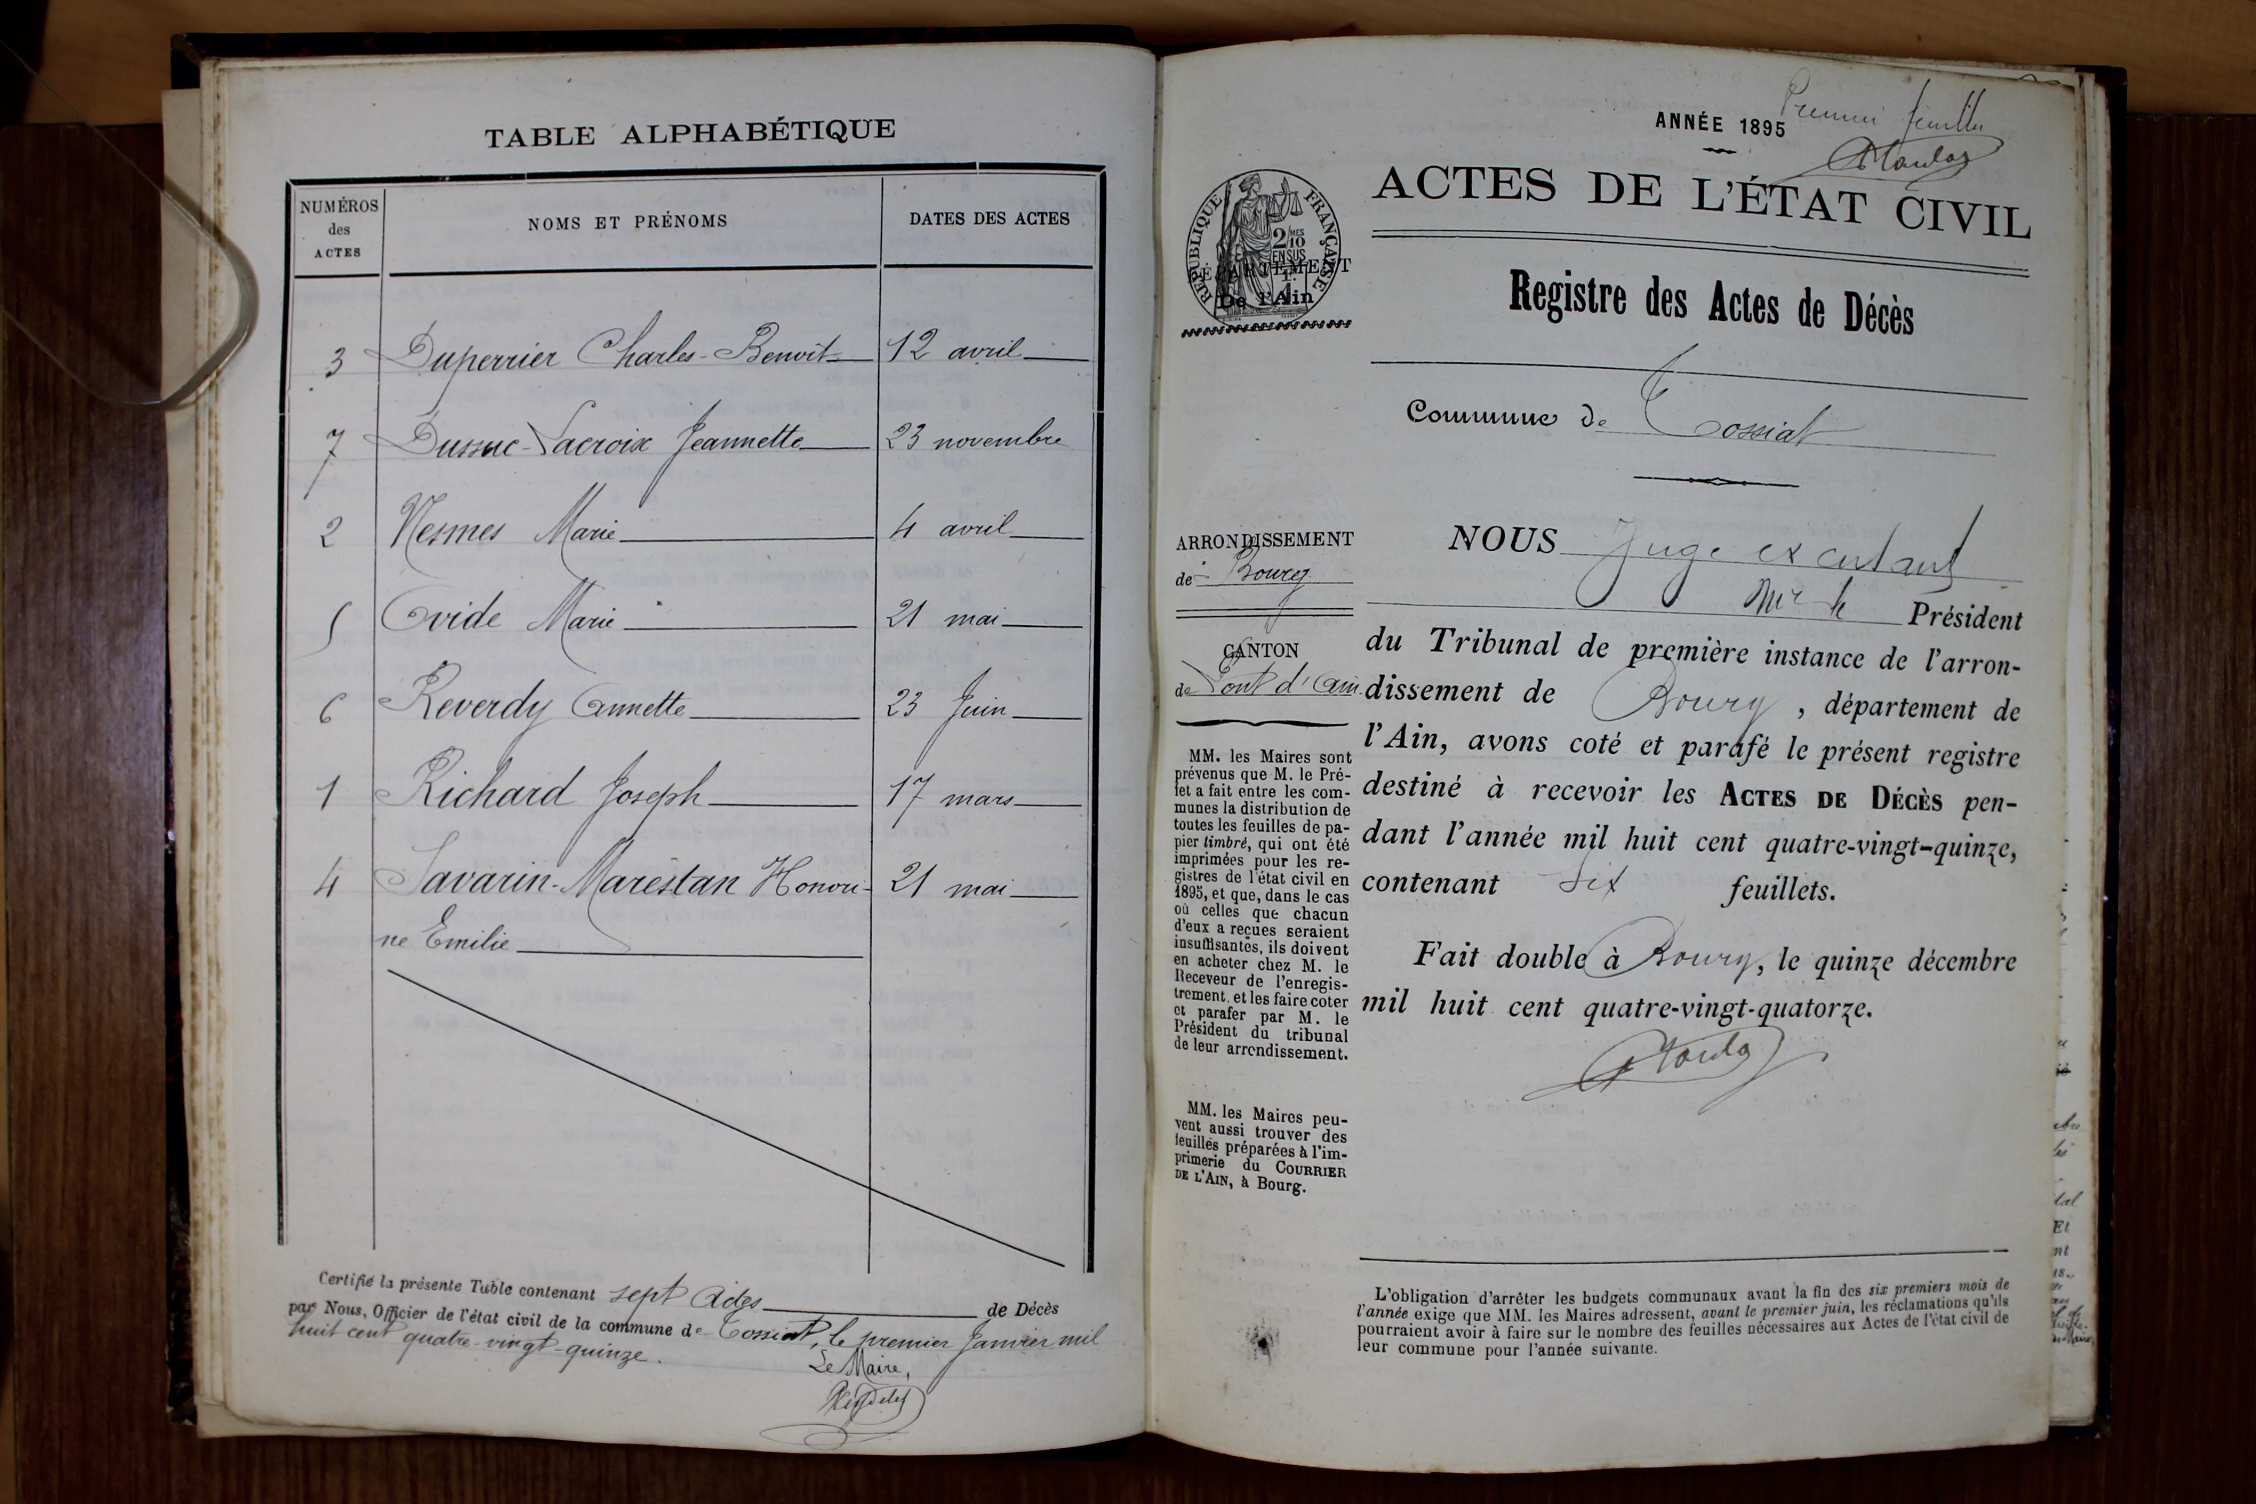 TABLE ALPHABÉTIQUE
NUMÉROS
des
ACTES
NOMS ET PRÉNOMS
DATES DES ACTES
3 Duperrier Charles-Benoit 12 avril
7 Dussuc-Lacroix Jeannette 23 novembre
2 Nesmes Marie 4 avril
5 Ovide Marie 21 mai
6 Reverdy Annette 23 Juin
1 Richard Joseph 17 mars
4 Savarin-Marestan Honori- 21 mai
ne Emilie
Certifié la présente Table contenant sept Actes de Décès
par Nous, Officier de l'état civil de la commune de Tossiat, le premier Janvier mil
huit cent quatre-vingt-quinze.
Le Maire,
ANNÉE 1895
Premier feuillet
ACTES DE L'ÉTAT CIVIL
RÉPUBLIQUE FRANÇAISE
2 MES
10
EN SUS
DÉPARTEMENT
De l'Ain
Registre des Actes de Décès
Commune de Tossiat
ARRONDISSEMENT
de Bourg
CANTON
de Pont d'Ain
MM. les Maires sont
prévenus que M. le Pré-
fet a fait entre les com-
munes la distribution de
toutes les feuilles de pa-
pier timbré, qui ont été
imprimées pour les re-
gistres de l'état civil en
1895, et que, dans le cas
où celles que chacun
d'eux a reçues seraient
insuffisantes, ils doivent
en acheter chez M. le
Receveur de l'enregis-
trement, et les faire coter
et parafer par M. le
Président du tribunal
de leur arrondissement.
MM. les Maires peu-
vent aussi trouver des
feuilles préparées à l'im-
primerie du COURRIER
DE L'AIN, à Bourg.
NOUS Juge
Mr le Président
du Tribunal de première instance de l'arron-
dissement de Bourg, département de
l'Ain, avons coté et parafé le présent registre
destiné à recevoir les ACTES DE DÉCÈS pen-
dant l'année mil huit cent quatre-vingt-quinze,
contenant six feuillets.
Fait double à Bourg, le quinze décembre
mil huit cent quatre-vingt-quatorze.
L'obligation d'arrêter les budgets communaux avant la fin des six premiers mois de
l'année exige que MM. les Maires adressent, avant le premier juin, les réclamations qu'ils
pourraient avoir à faire sur le nombre des feuilles nécessaires aux Actes de l'état civil de
leur commune pour l'année suivante.